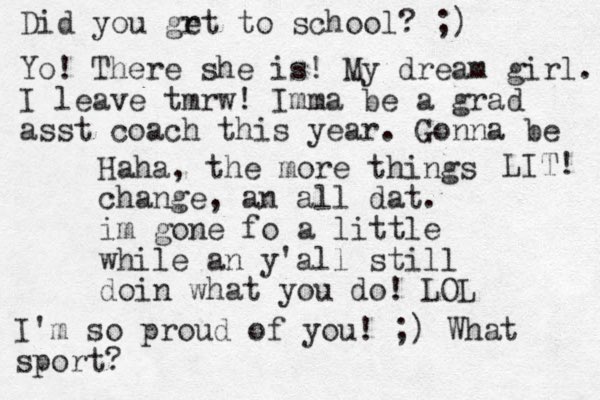 Did you get to school? ;)
Yo! There she is! My dream girl.
I leave tmrw! Imma be a grad
asst coach this year. Gonna be
LIT!
Haha, the more things
change, an all dat.
im gone fo a little
while an y'all still
doin what you do! LOL
I'm so proud of you! ;) What
sport?